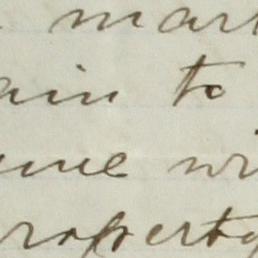 mar
ain to
me wi
roperty